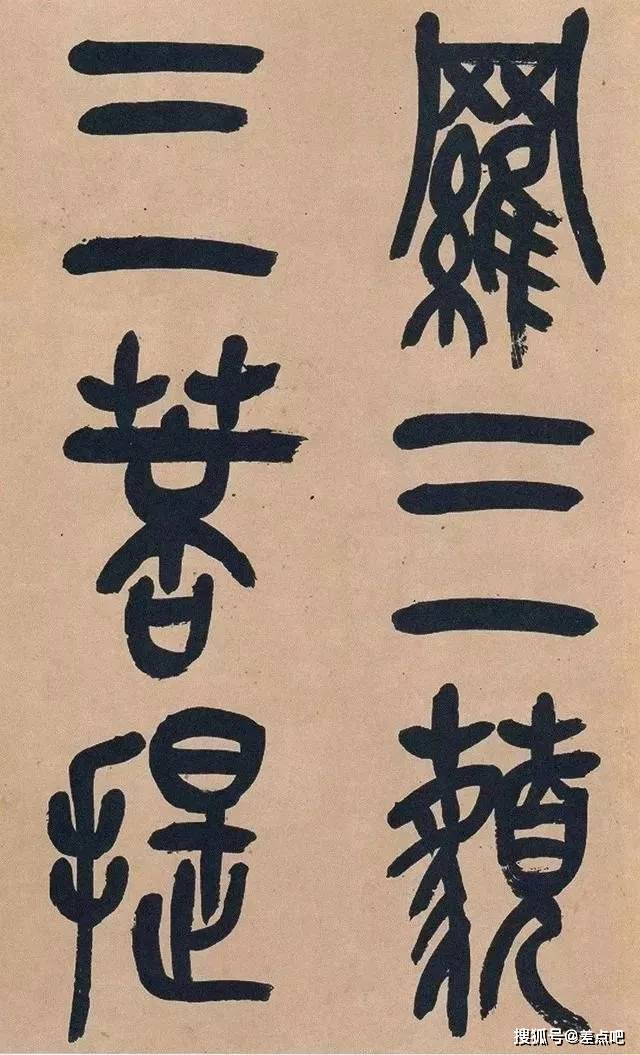 羅三藐
三菩提
搜狐号@差点吧